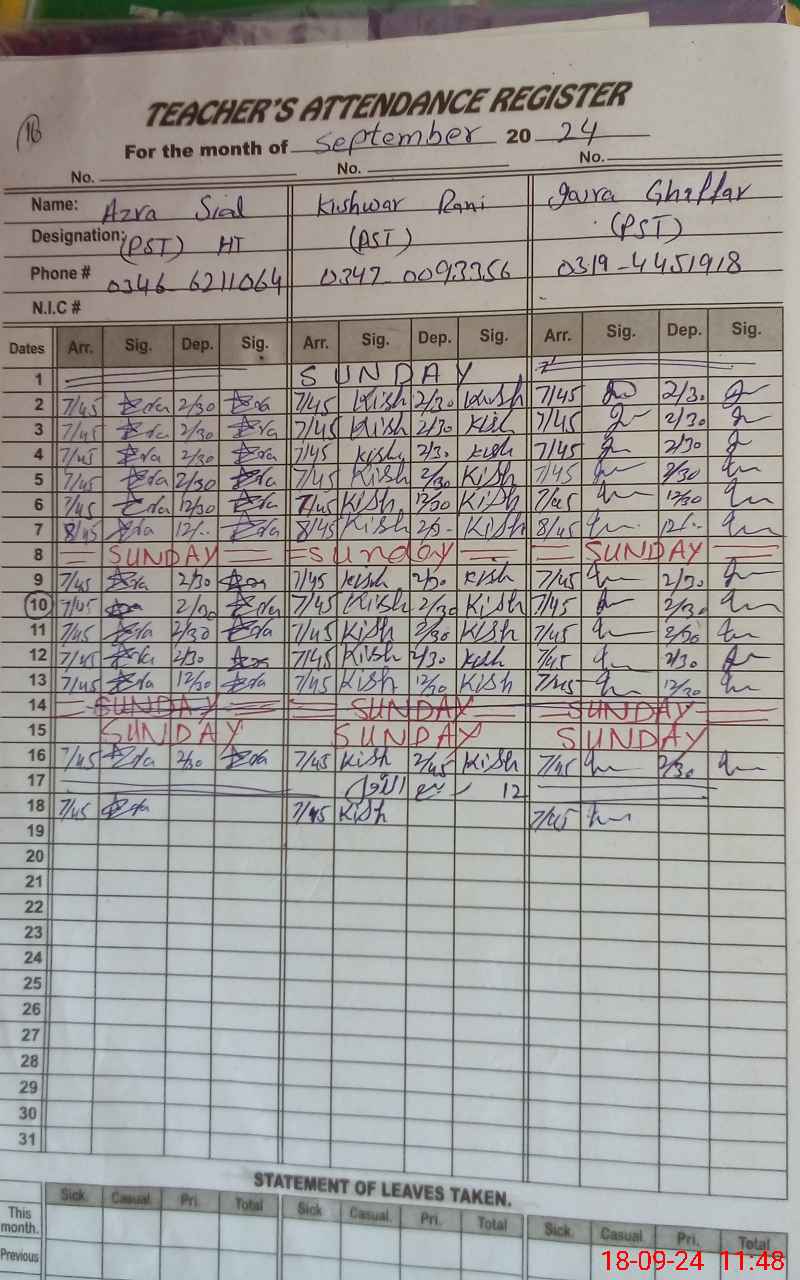 16
TEACHER'S ATTENDANCE REGISTER
For the month of September 20 24
No. No. No.
Name: Azra Sial Kishwar Rani Ghaffar
Designation: (PST) HT (PST) (PST)
Phone # 0346-6211064 0347-0093356 0319-4451918
N.I.C #
Dates Arr. Sig. Dep. Sig. Arr. Sig. Dep. Sig. Arr. Sig. Dep. Sig.
1 SUNDAY
2 7/45 2/30 7/45 Kish 2/30 Kish 7/45 2/30
3 7/45 2/30 7/45 Kish 2/30 Kish 7/45 2/30
4 7/45 2/30 7/45 Kish 2/30 Kish 7/45 2/30
5 7/45 2/30 7/45 Kish 2/30 Kish 7/45 2/30
6 7/45 12/30 7/45 Kish 12/30 Kish 7/45 12/30
7 8/45 12/- 8/45 Kish Kish 8/45 12/-
8 SUNDAY Sunday SUNDAY
9 7/45 2/30 7/45 Kish 2/30 Kish 7/45 2/30
10 7/45 2/30 7/45 Kish 2/30 Kish 7/45 2/30
11 7/45 2/30 7/45 Kish 2/30 Kish 7/45 2/30
12 7/45 2/30 7/45 Kish 2/30 Kish 7/45 2/30
13 7/45 12/30 7/45 Kish 12/30 Kish 7/45 12/30
14 SUNDAY SUNDAY SUNDAY
15 SUNDAY SUNDAY SUNDAY
16 7/45 2/30 7/45 Kish 2/45 Kish 7/45 2/30
17 12 ربیع الاول
18 7/45 7/45 Kish 7/45
19
20
21
22
23
24
25
26
27
28
29
30
31
STATEMENT OF LEAVES TAKEN.
Sick Casual Pri. Total Sick Casual Pri. Total Sick Casual Pri. Total
This month.
Previous
18-09-24 11:48